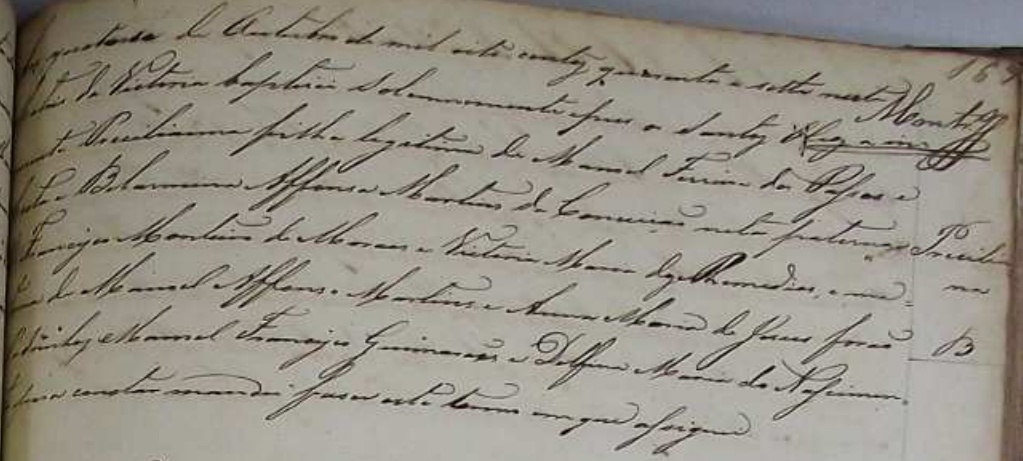 quatorze de Outubro de mil oito centos quarenta e sette nesta Matriz
de Victoria baptizei solemnemente e pus os Santos
Preciliana filha legitima de Manoel Ferreira dos Passos e
Belarmina Affonsa Martins da Conceição neta paterna
Francisco Monteiro de Moraes e Victoria Maria dos Remedios, e ma-
de Manoel Affonso Martins e Anna Maria de Jesus forão
Padrinhos Manoel Francisco Guimarães e Delfina Maria do Nascimen-
constar mandei fazer este termo em que assignei
Precilia
na
B